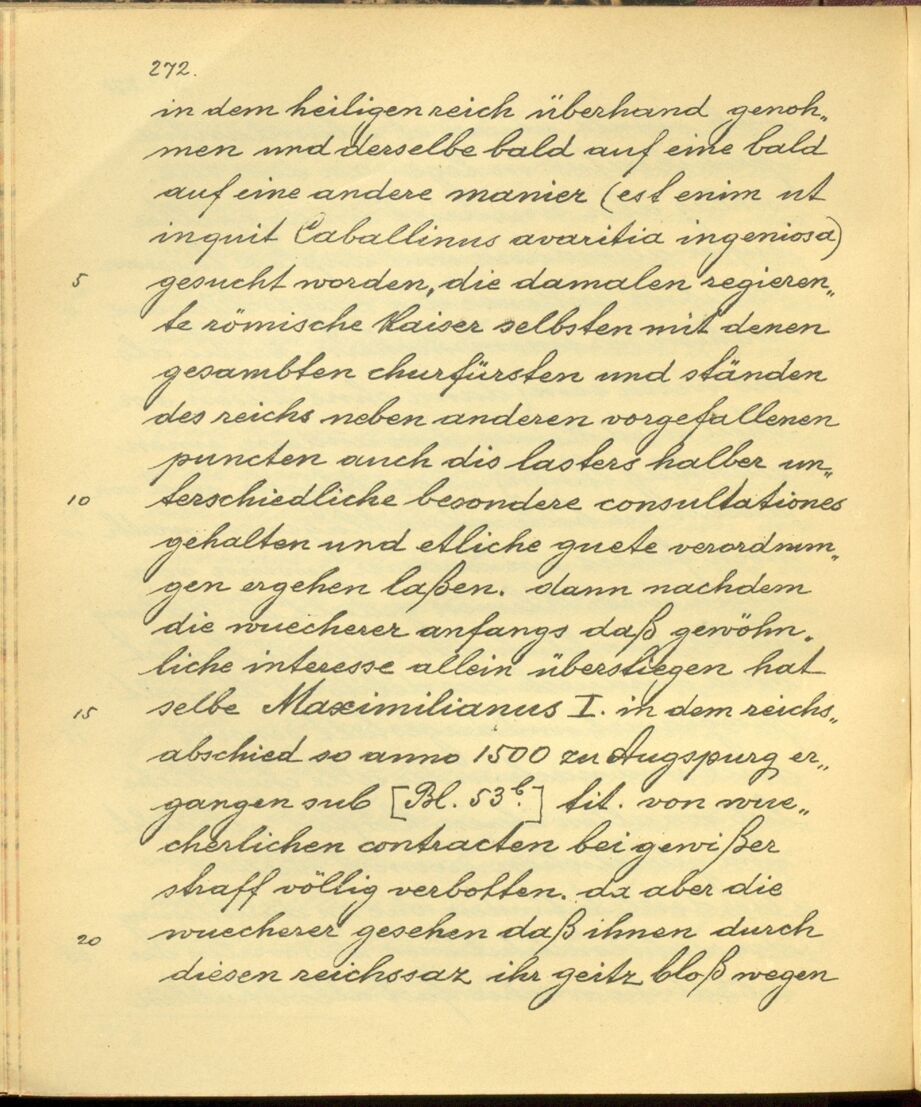 272.
in dem heiligen reich überhand genoh„
men und derselbe bald auf eine bald
auf eine andere manier (est enim ut
inquit Caballinus avaritia ingeniosa)
5 gesucht worden, die damalen regieren„
te römische Kaiser selbsten mit denen
gesambten churfürsten und ständen
des reichs neben anderen vorgefallenen
puncten auch dis lasters halber un„
10 terschiedliche besondere consultationes
gehalten und etliche guete verordnun„
gen ergehen laßen. dann nachdem
die wuecherer anfangs daß gewöhn„
liche interesse allein überstiegen hat
15 selbe Maximilianus I. in dem reichs„
abschied so anno 1500 zu Augspurg er„
gangen sub [Bl. 53b.] tit. von wue„
cherlichen contracten bei gewißer
straff völlig verbotten. da aber die
20 wuecherer gesehen daß ihnen durch
diesen reichssaz ihr geitz bloß wegen